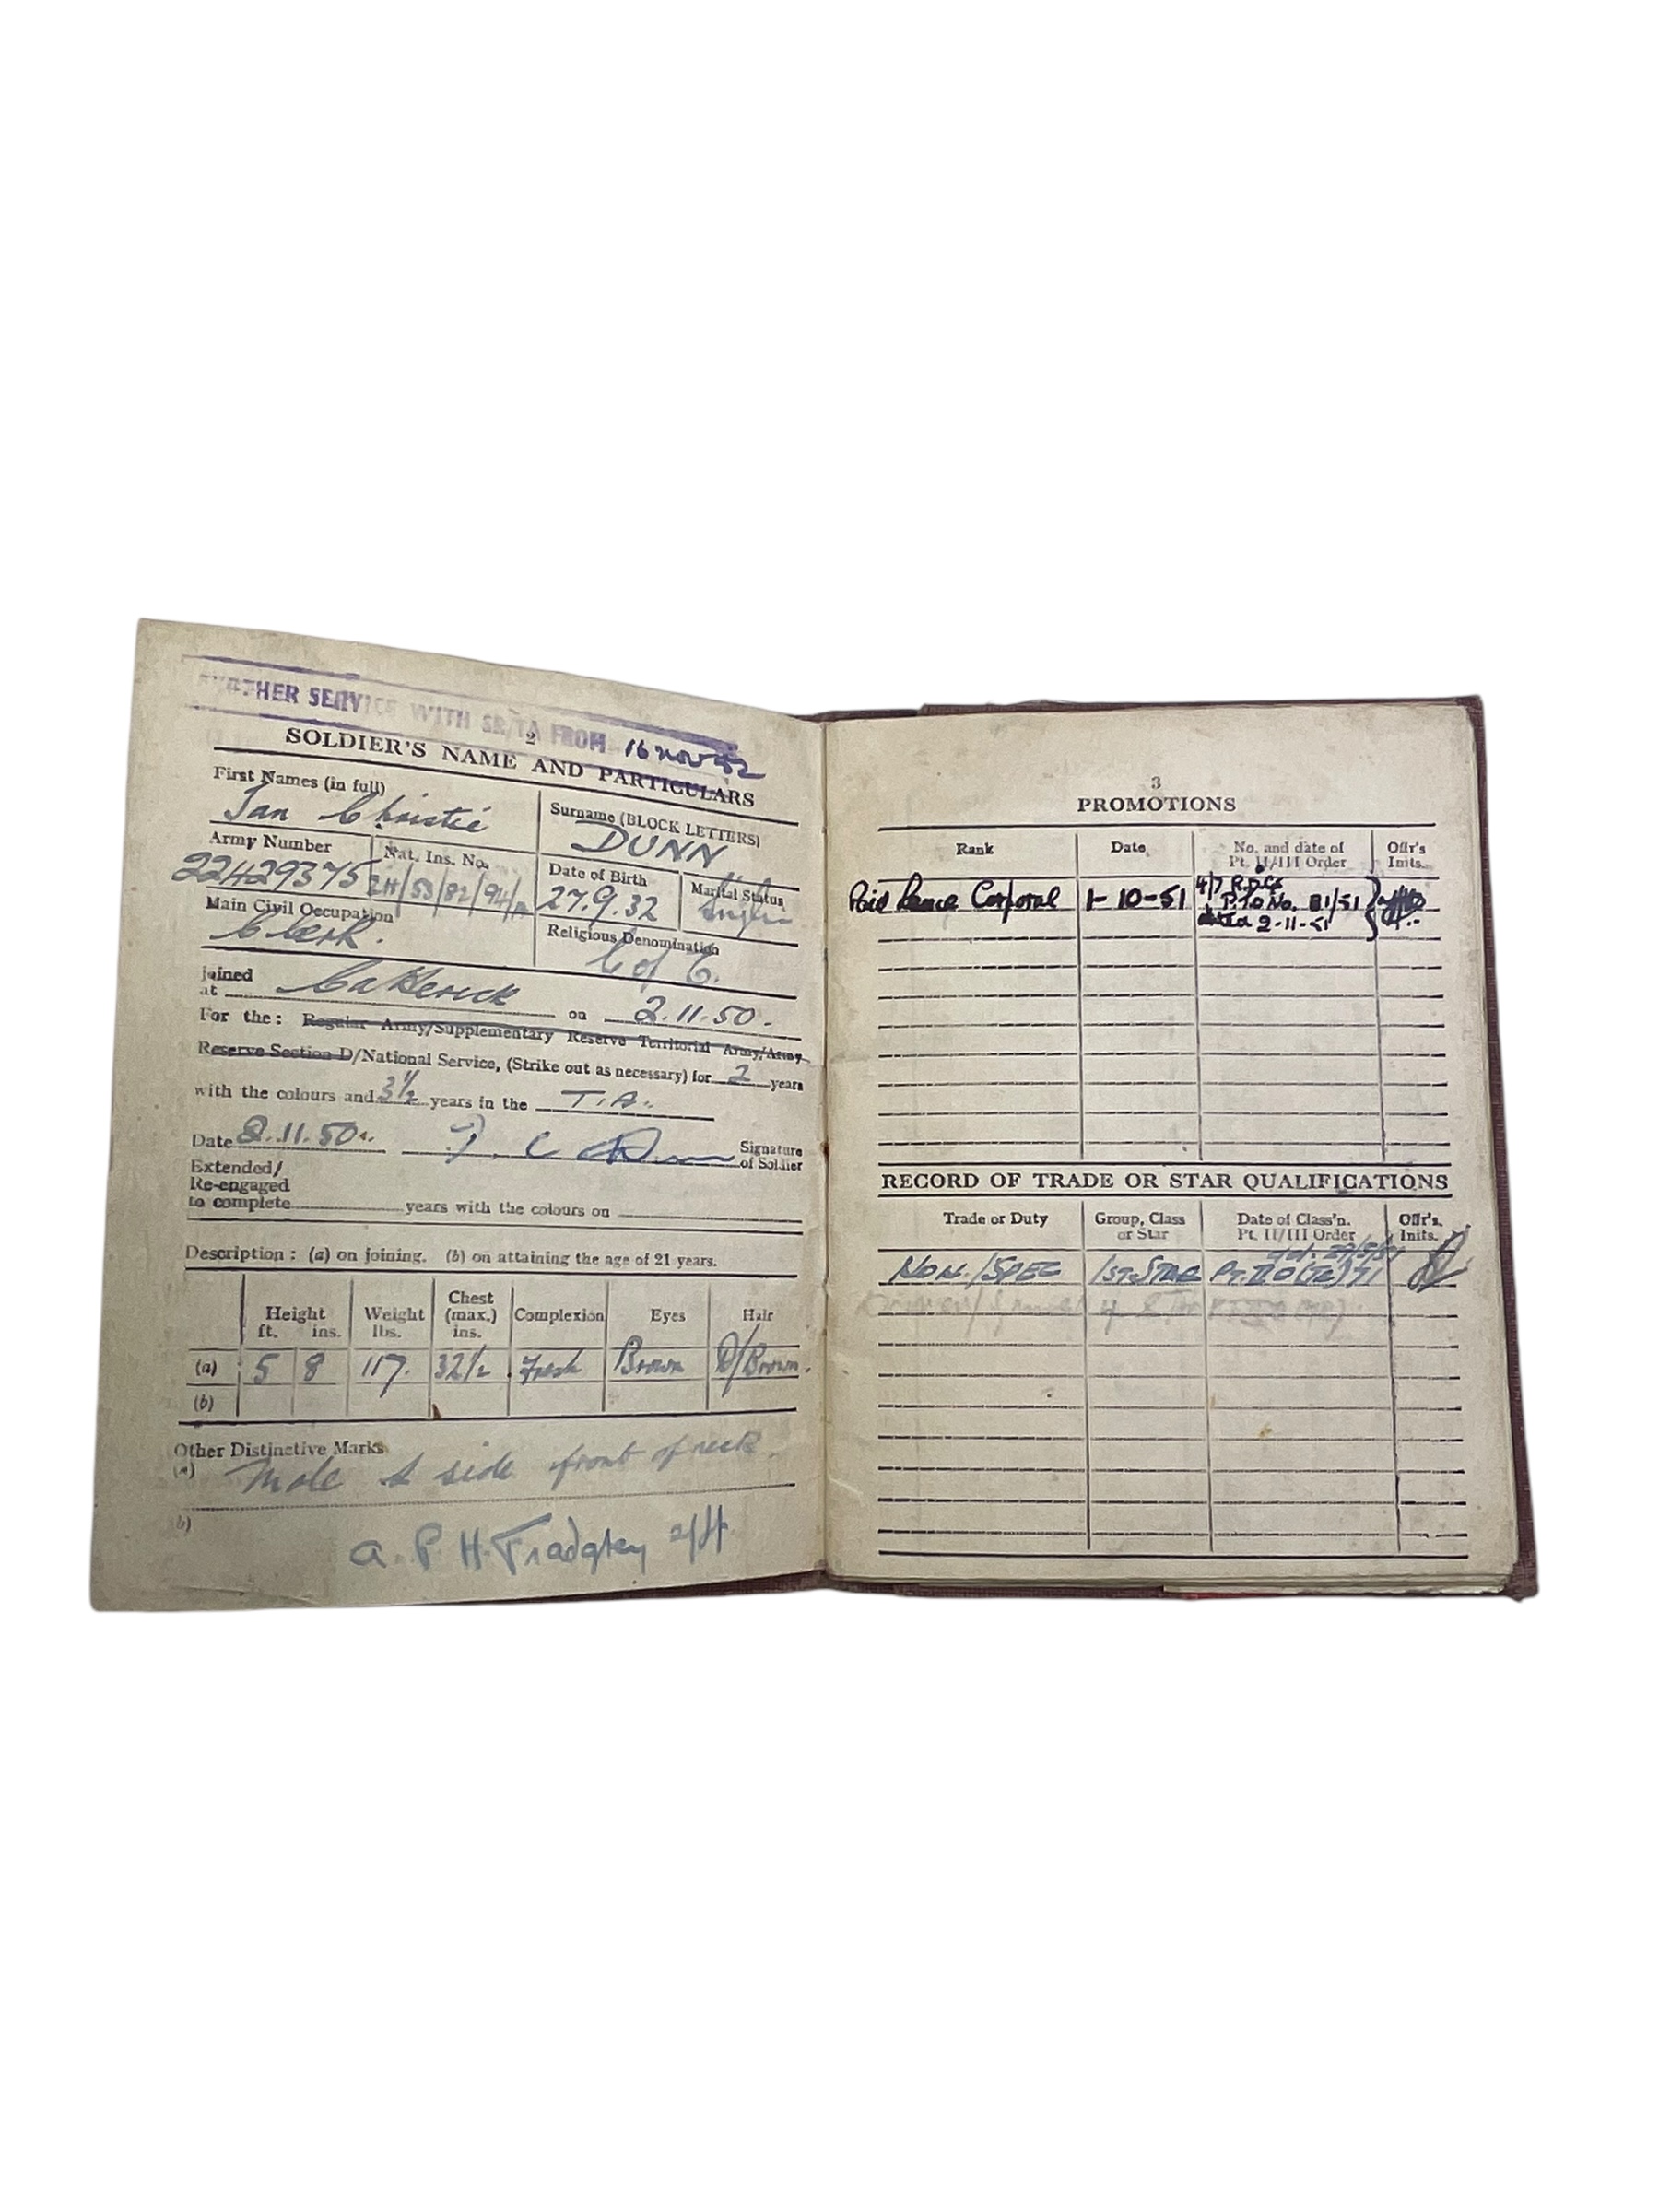 FURTHER SERVICE WITH SR/TA FROM 16 Nov 52
2
SOLDIER'S NAME AND PARTICULARS
First Names (in full)
Ian Christie
Surname (BLOCK LETTERS)
DUNN
Army Number
22429375
Nat. Ins. No.
Date of Birth
27.9.32
Marital Status
Single
Main Civil Occupation
Clerk.
Religious Denomination
C of E.
Joined
at Catterick on 2.11.50.
For the: Regular Army/Supplementary Reserve Territorial Army/Army
Reserve Section D/National Service, (Strike out as necessary) for 2 years
with the colours and 3½ years in the T.A.
Date 2.11.50. I. C. Dunn Signature
of Soldier
Extended/
Re-engaged
to complete years with the colours on
Description: (a) on joining. (b) on attaining the age of 21 years.
Height
ft. ins.
Weight
lbs.
Chest
(max.)
ins.
Complexion
Eyes
Hair
(a) 5 8 117. 32½ Fresh Brown D/Brown.
(b)
Other Distinctive Marks
(a) Mole side front of neck.
(b)
A. P. H. Fradgley
3
PROMOTIONS
Rank
Date
No. and date of
Pt. II/III Order
Offr's
Inits.
Paid Lance Corporal 1-10-51
4/7 R.D.G.
P.T.O No. 81/51
dated 2-11-51
RECORD OF TRADE OR STAR QUALIFICATIONS
Trade or Duty
Group, Class
or Star
Date of Class'n.
Pt. II/III Order
Offr's.
Inits.
NON./SPEC 1ST. STAR Pt. II O (TC) 71